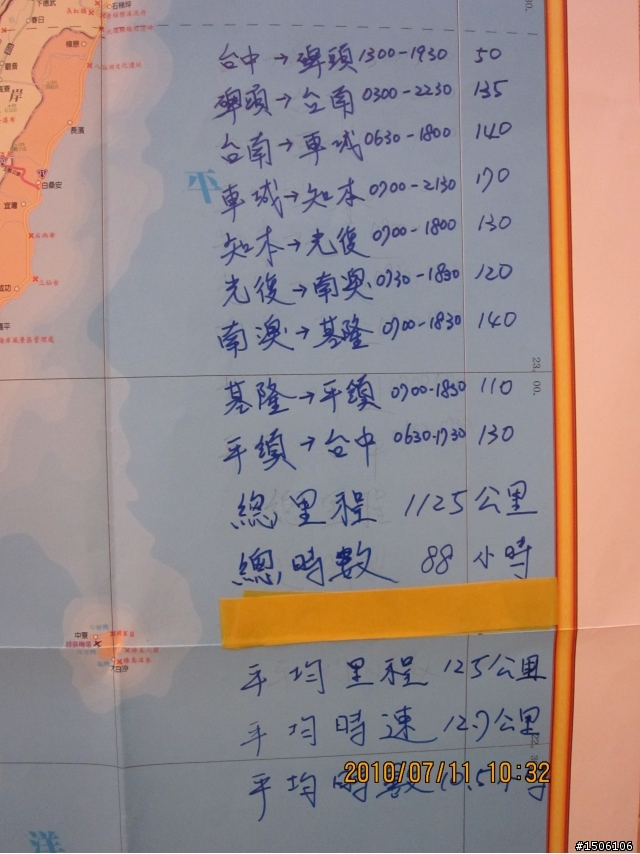 台中→學頭1300-1930 50
學頭→台南 0300-2230 135
台南→車城0630-1800 140
車城→知本0700-2130 170
知本→光復 0700-1800 130
光復→南澳0730-1830 120
南澳→基隆 0700-1830 140
基隆→平鎮 0700-1830 110
平鎮→台中 0630-1730 130
總里程 1125公里
總時數 88小時
平均里程125公里
平均時速 12.7公里
平均時數10.5小時
2010/07/11 10:32
平
洋
岸
石梯坪
樟原
長濱
白桑安
宜灣
成功
中寮
白沙
23. 00.
#1506106